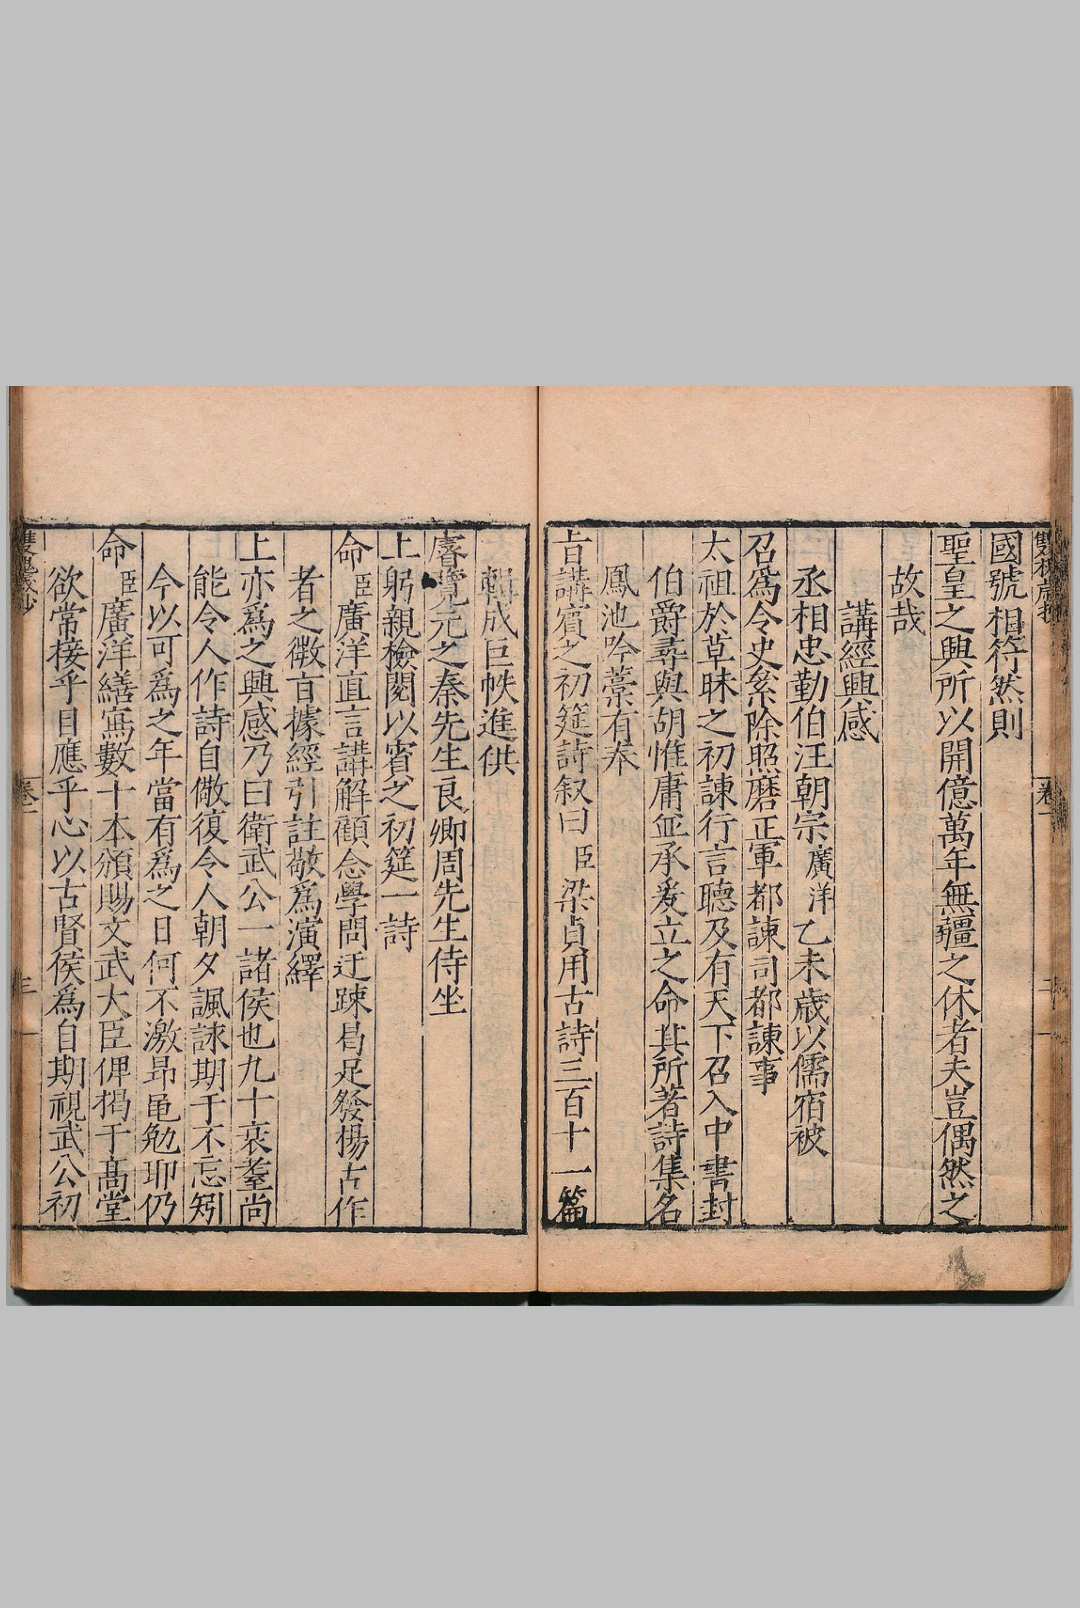 國號相符然則
聖皇之興所以開億萬年無疆之休者夫豈偶然之
故哉
講經興感
丞相忠勤伯汪朝宗廣洋乙未歲以儒宿被
召爲令史累除照磨正軍都諫司都諫事
太祖於草昧之初諫行言聽及有天下召入中書封
伯爵尋與胡惟庸並承爰立之命其所著詩集名
鳳池吟藁有奉
旨講賓之初筵詩叙曰臣梁貞用古詩三百十一篇
輯成巨帙進供
睿覽元之秦先生良卿周先生侍坐
上躬親檢閱以賓之初筵一詩
命臣廣洋直言講解顧念學問迂踈曷足發揚古作
者之微旨據經引註敬爲演繹
上亦爲之興感乃曰衛武公一諸侯也九十衰耄尚
能令人作詩自儆復令人朝夕諷誦期于不忘矧
今以可爲之年當有爲之日何不激昻黽勉耶仍
命臣廣洋繕寫數十本頒賜文武大臣俾揭于髙堂
欲常接乎目應乎心以古賢侯爲自期視武公初
卷一
三